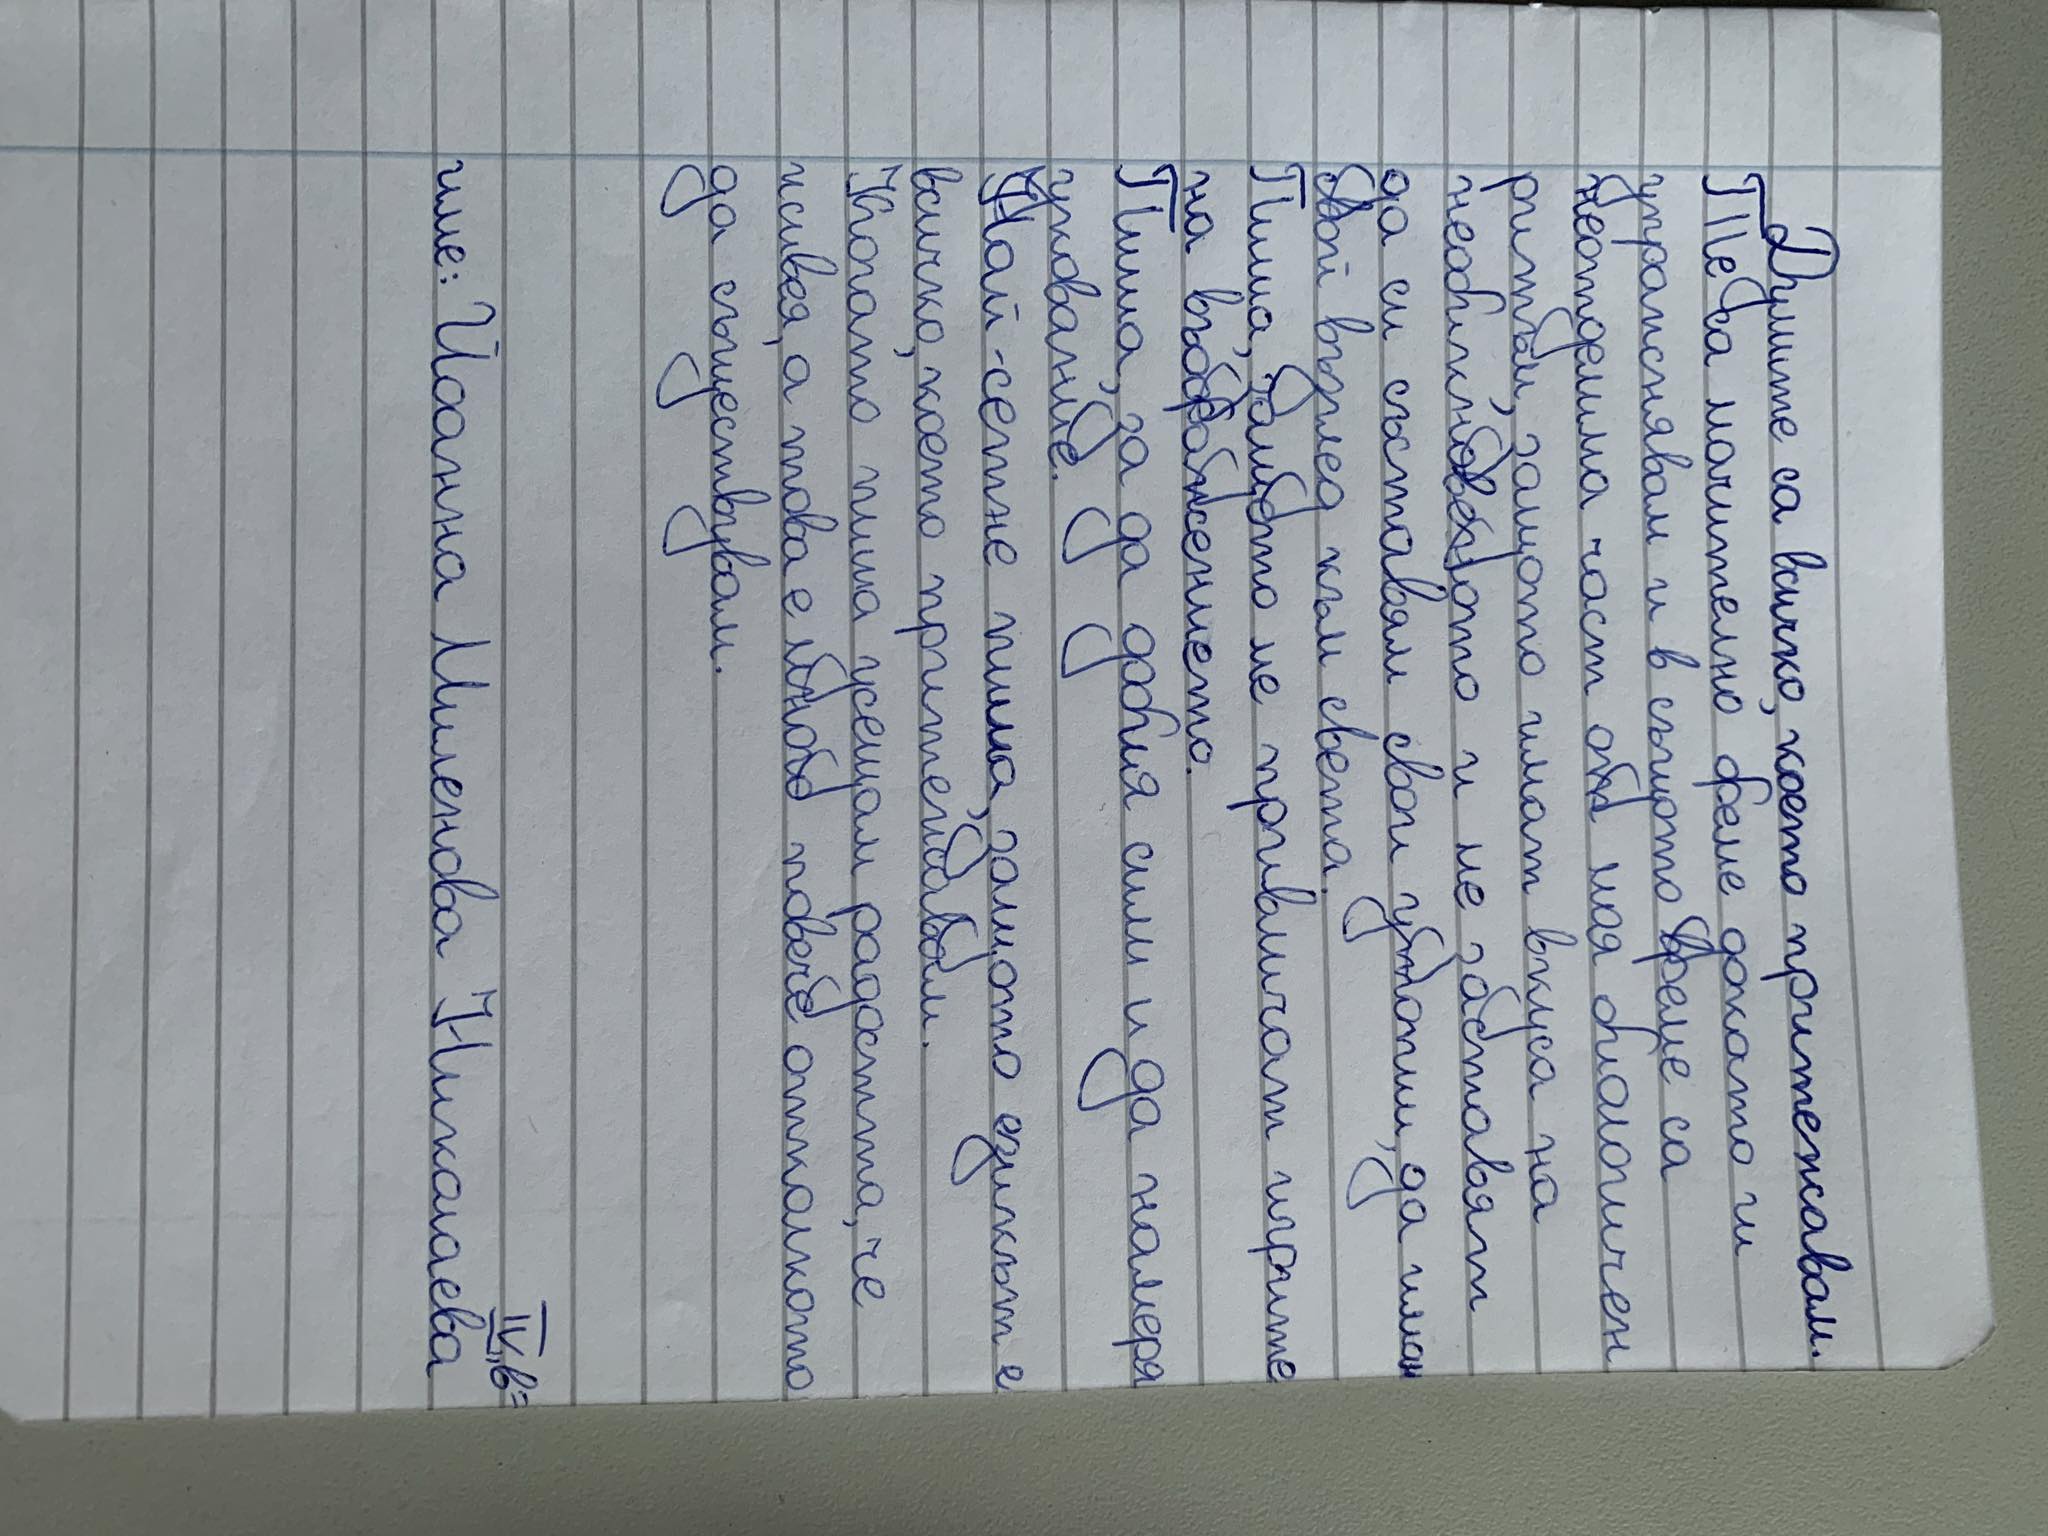 Думите са всичко, което притежавам.
Те са мачително бреме докато ги
упражнявам и в същото време са
неотделима част от моя биологичен
ритъм, защото имат вкуса на
необикновеното и ме заставят
да си съставям свои утопии, да имам
свой възглед към света.
Пиша, защото ме привличат игрите
на въображението.
Пиша, за да добия сили и да намеря
упование.
Най-сетне пиша, защото езикът е
всичко, което притежавам.
Когато пиша усещам радостта, че
живея, а това е много повече отколкото
да съществувам.
IV "в"
име: Йоанна Миленова Николаева